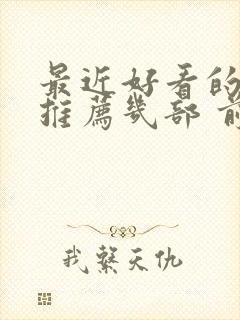 最近好看的
推薦幾部 前
我繫天仇